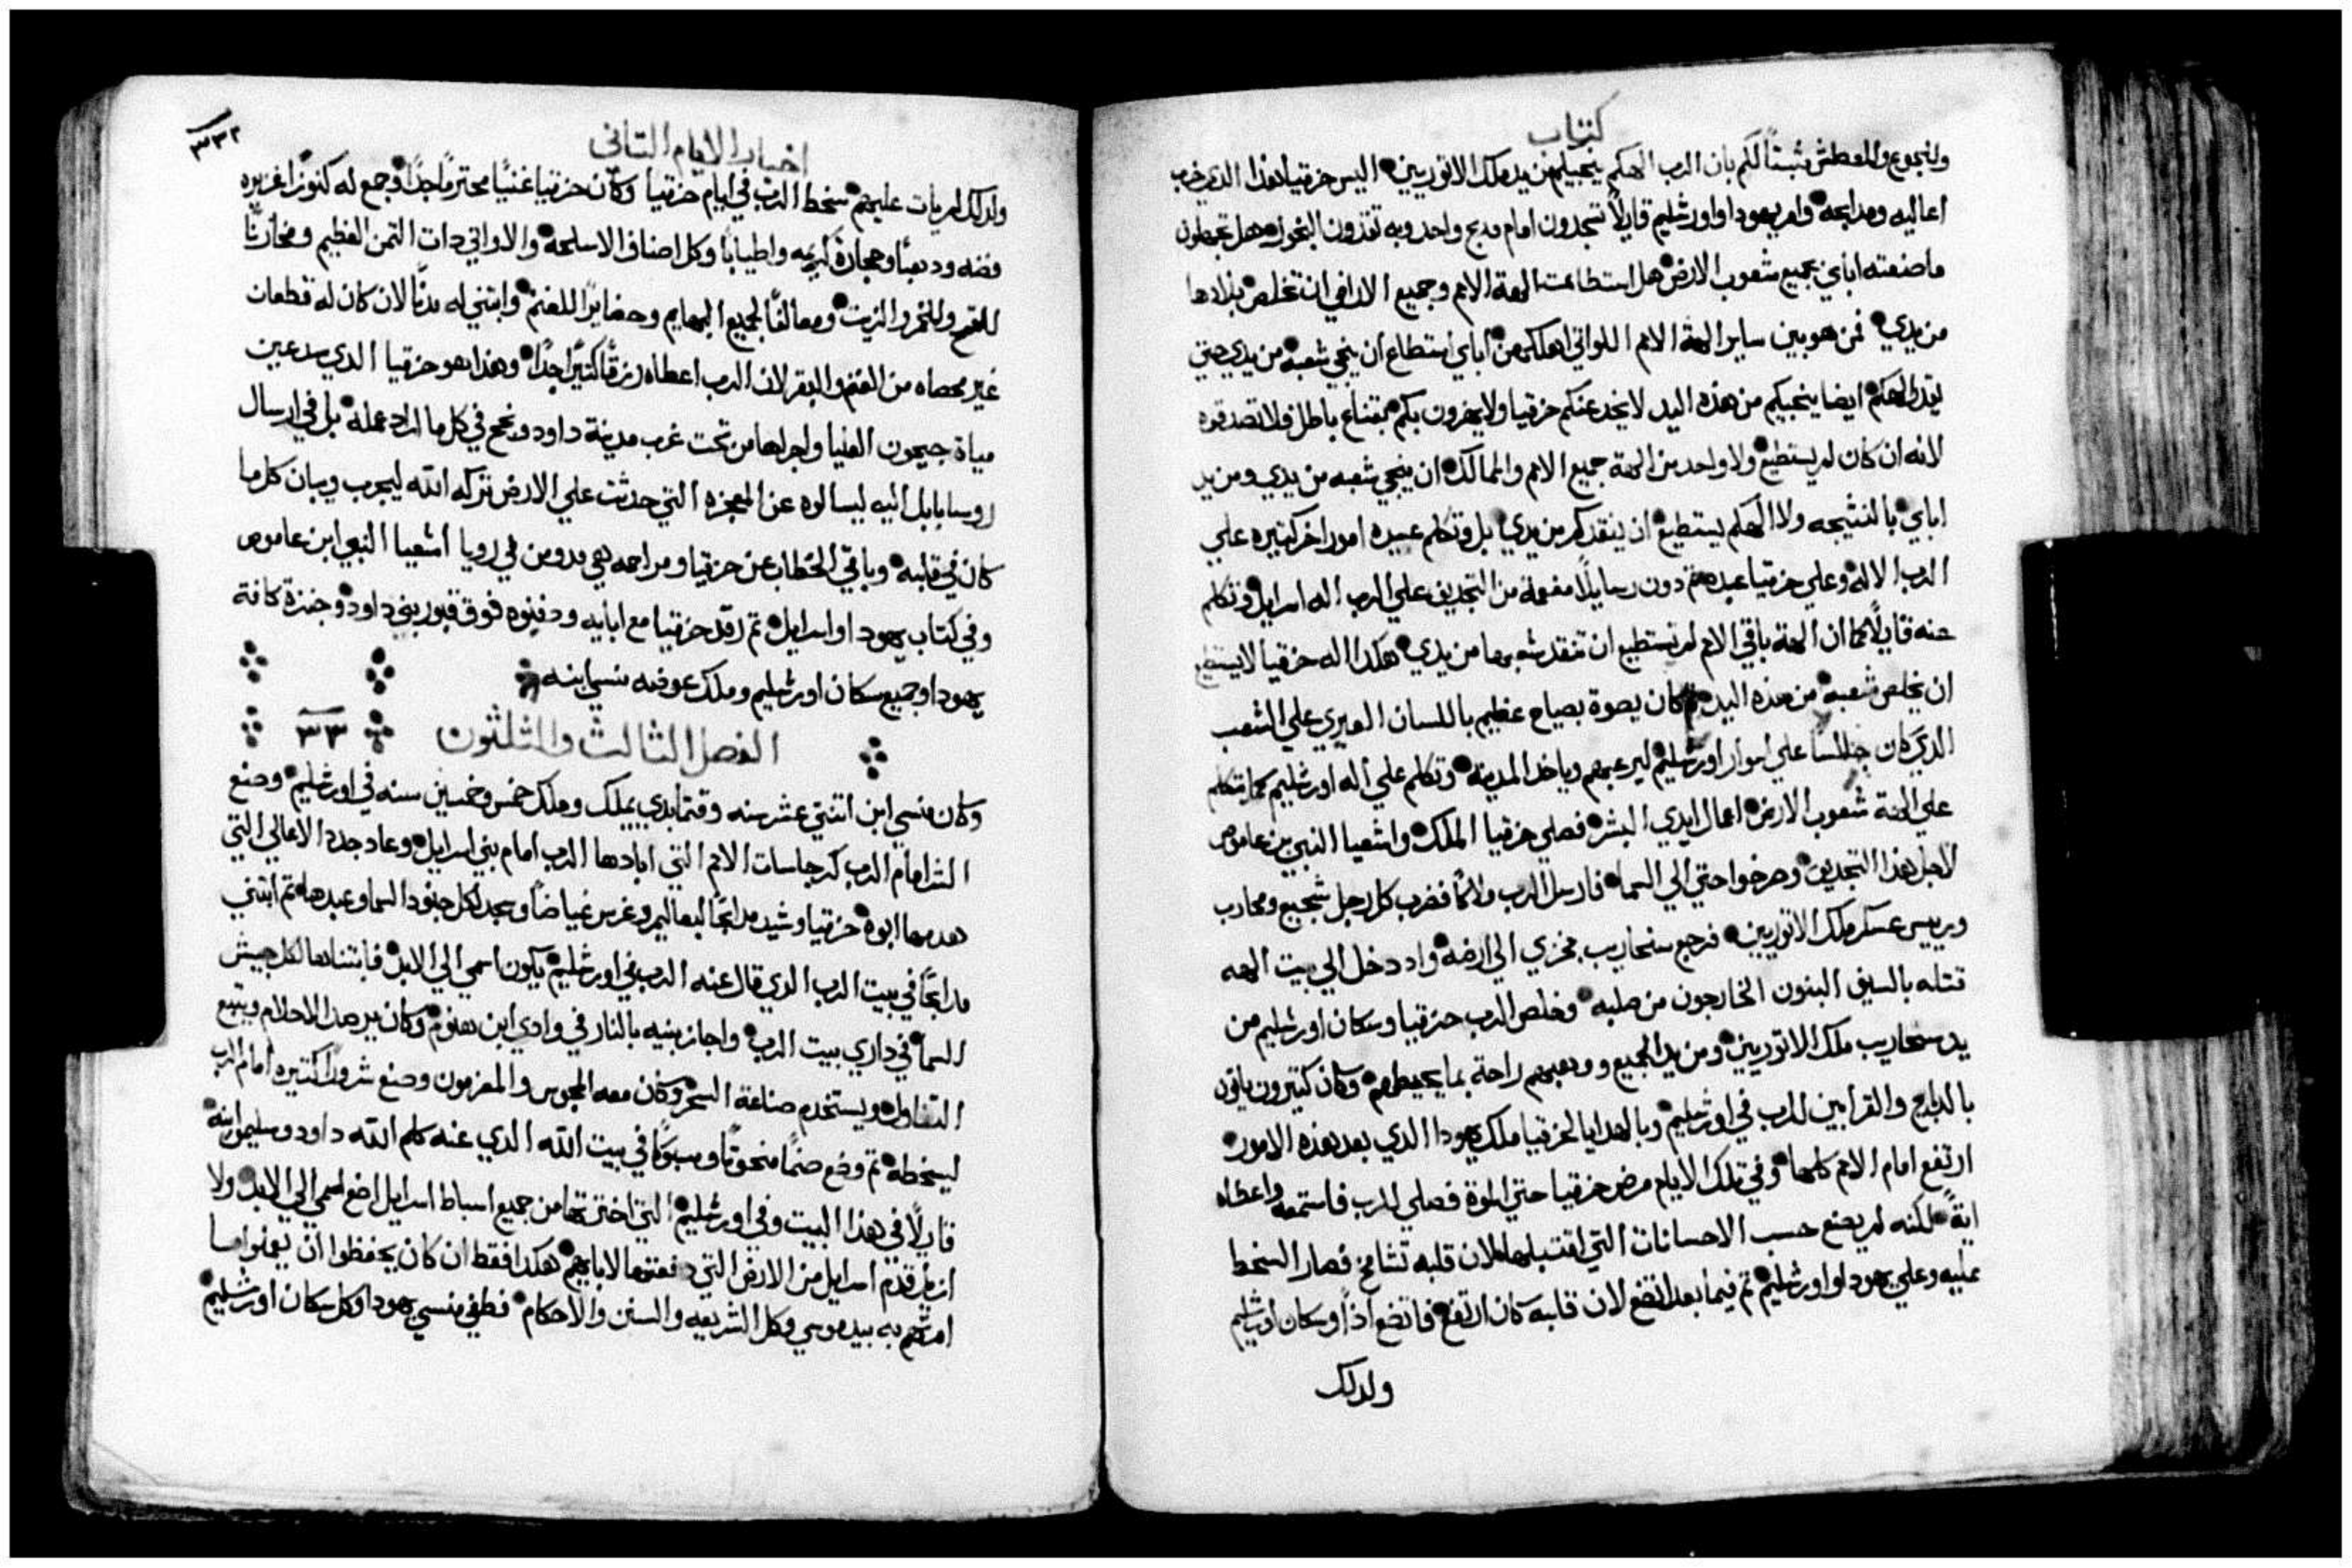 كتاب
وللجوع والعطش مثبتًا لكم بان الرب الهكم ينجيكم من يد ملك الاتوريين اليس حزقيا هذا الدي خرب
اعاليه ومدابحه وامر يهودا واورشليم قايلًا تسجدون امام مدبح واحد وبه تقدون البخور هل تجهلون
ما صنعته اباي بجميع شعوب الارض هل استطاعت الهة الامم وجميع الاراضي ان تخلص بلادها
من يدي فمن هو بين ساير الهة الامم اللواتي اهلكهن اباي استطاع ان ينجي شعبه من يدي حتي
يقدر الهكم ايضا ينجيكم من هذه اليد لا يخدعنكم حزقيا ولا يغرون بكم بقناع باطل ولا تصدقوه
لانه ان كان لم يستطيع ولا واحد من الهة جميع الامم والممالك ان ينجي شعبه من يدي ومن يد
اباي بالنتيجه ولا الهكم يستطيع ان ينقدكم من يدي بل وتكلم عبيده امورا اخر كتيره علي
الرب الاله وعلي حزقيا عبده تم دون رسايلًا مفعمة من التجديف علي الرب اله اسرايل وتكلم
عنه قايلًا كما ان الهة باقي الامم لم تستطيع ان تنقد شعبها من يدي هكدا اله حزقيا لا يستطيع
ان يخلص شعبه من هذه اليد تم كان يصوة بصياح عظيم باللسان العبري علي الشعب
الدي كان جالسًا علي اسوار اورشليم ليرعبهم وياخد المدينه وتكلم علي اله اورشليم كما تكلم
علي الهة شعوب الارض اعمال ايدي البشر فصلي حزقيا الملك واشعيا النبي بن عاموص
لاجل هذا التجديف وصرخوا حتي الي السما فارسل الرب ملاكًا فضرب كل رجل شجيع ومحارب
وريس عسكر ملك الاتوريين فرجع سنحاريب بخزي الي ارضه واد دخل الي بيت الهه
قتله بالسيف البنون الخارجون من صلبه وخلص الرب حزقيا وسكان اورشليم من
يد سنحاريب ملك الاتوريين ومن يد الجميع ووهبهم راحة بما يحيطهم وكان كتيرون ياتون
بالدبايح والقرابين للرب في اورشليم وبالهدايا لحزقيا ملك يهودا الدي بعد هذه الامور
ارتفع امام الامم كلها وفي تلك الايام مرض حزقيا حتي الموة فصلي للرب فاستمعه واعطاه
ايةً لكنه لم يصنع حسب الاحسانات التي اقتبلها لان قلبه تشامخ فصار السخط
عليه وعلي يهودا واورشليم تم فيما بعد اتضع لان قلبه كان ارتفع فاتضع اذًا وسكان اورشليم
ولدلك
اخبار الايام التاني
٣٣٢
ولدلك لم يات عليهم سخط الرب في ايام حزقيا وكان حزقيا غنيًا محترمًا جدًا وجمع له كنوزًا غزيره
فضه ودهبًا وحجارة كريمه واطيابًا وكل اصناف الاسلحه والاواني دات التمن العظيم ومخازنًا
للقمح وللخمر والزيت ومعالفًا لجميع البهايم وحضايرًا للغنم وابتني له مدنًا لان كان له قطعان
غير محصاه من الغنم والبقر لان الرب اعطاه رزقًا كتيرًا جدًا وهذا هو حزقيا الدي سد عين
مياة جيحون العليا واجراها من تحت غرب مدينة داود ونجح في كل ما اراد عمله بل في ارسال
روسا بابل اليه ليسالوه عن المعجزه التي حدثت علي الارض تركه الله ليجرب ويبان كل ما
كان في قلبه وباقي الخطاب عن حزقيا ومراحمه هي مدونه في رويا اشعيا النبي ابن عاموص
وفي كتاب يهودا واسرايل تم رقد حزقيا مع ابايه ودفنوه فوق قبور بني داود وجنزه كافة
يهودا وجميع سكان اورشليم وملك عوضه منسي ابنه
الفصل الثالث والثلثون ٣٣
وكان منسي ابن اتنتي عشر سنه وقتما بدي يملك وملك خمس وخمسين سنه في اورشليم وصنع
الشر امام الرب كرجاسات الامم التي ابادها الرب امام بني اسرايل وعاد جدد الاعالي التي
هدمها ابوه حزقيا وشيد مدابحًا لبعاليم وغرس غياضًا وسجد لكل جنود السما وعبدها تم ابتني
مدابحًا في بيت الرب الدي قال عنه الرب في اورشليم يكون اسمي الي الابد فابتناها لكل جيش
السما في داري بيت الرب واجاز بنيه بالنار في وادي ابن هنوم وكان يرصد الاحلام ويتبع
التفاول ويستخدم صناعة السحر وكان معه المجوس والمعزمون وصنع شرورًا كتيره امام الرب
ليسخطه تم وضع صنمًا منحوتًا ومسبوكًا في بيت الله الدي عنه كلم الله داود وسليمن ابنه
قايلًا في هذا البيت وفي اورشليم التي اخترتها من جميع اسباط اسرايل اضع اسمي الي الابد ولا
ازيل قدم اسرايل من الارض التي دفعتها لابايهم هكدا فقط ان كان يحفظوا ان يعملوا ما
امرتهم به بيد موسي وكل الشريعه والسنن والاحكام فطغي منسي يهودا وكل سكان اورشليم